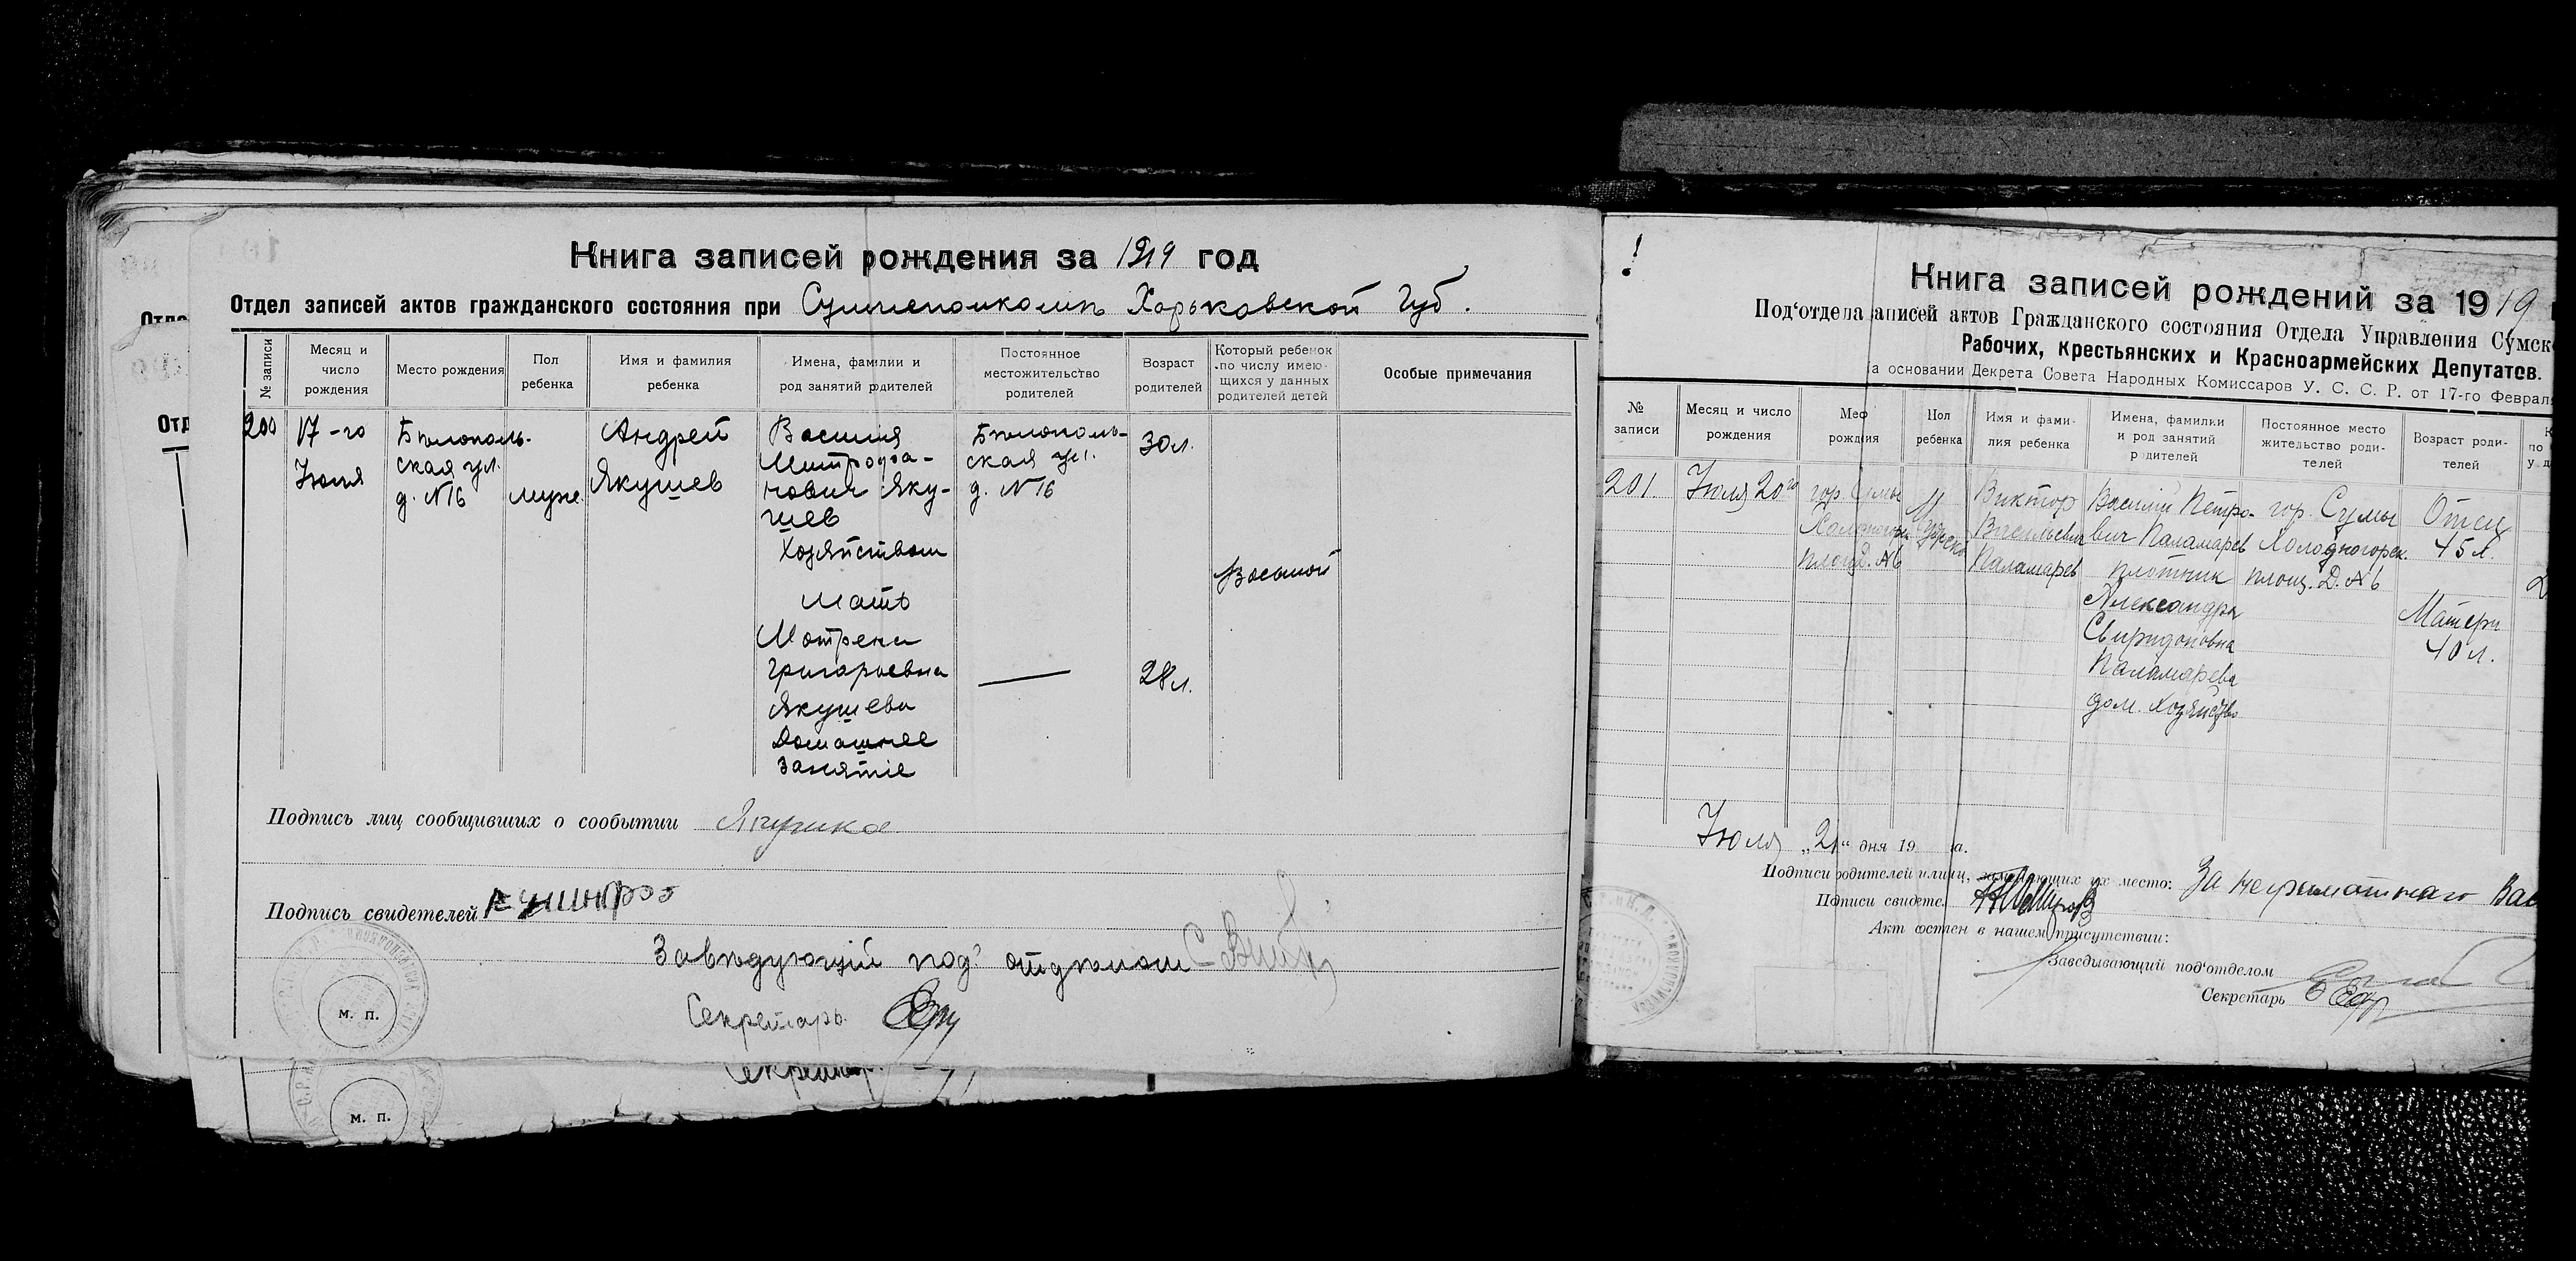 Книга записей рождения за 1919 год
Отдел записей актов гражданского состояния при Харьковской Губ.
№ записи
Месяц и число рождения
Место рождения
Пол ребенка
Имя и фамилия ребенка
Имена, фамилии и род занятий родителей
Постоянное местожительство родителей
Возраст родителей
Который ребенок по числу имеющихся у данных родителей детей
Особые примечания
200
17-го
Июля
Бѣлополь-
ская ул.
д. №16
муж.
Андрей
Якушев
Василия
Митрофа-
нович Яку-
шев
Хозяйством
Мать
Мотрена
Григорьевна
Якушева
Домашнее
занятіе
Бѣлополь-
ская ул.
д. №16
30 л.
28 л.
Восьмой
Подпись лиц сообщивших о сообытии
Подпись свидетелей
Завѣдующій под отдѣлом
Секретарь
м. п.
м. п.
Отд
!
Книга записей рождений за 1919
Под‘отдела записей актов Гражданского состояния Отдела Управления Сумск
Рабочих, Крестьянских и Красноармейских Депутатов.
а основании Декрета Совета Народных Комиссаров У. С. С. Р. от 17-го Феврал
№ записи
Месяц и число рождения
Мес рождия
Пол ребенка
Имя и фами-
лия ребенка
Имена, фамилии и род занятий родителей
Постоянное место жительство роди-
телей
Возраст роди-
телей
201
Июля 20го
гор. Сумы
площ. №6
Виктор
Васильевич
Паламарев
Василий Петро-
вич Паламарев
плотник
Александра
Свиридоновна
Паламарева
дом. хозяйство
гор. Сумы
Холодногорск.
площ. Д. №6
Отец
45 л.
Матери
40 л.
Июля „21“ дня 19 а.
Подписи родителей или лиц, заменяющих их место: За неграмотнаго Вас
Подписи свидетс.
Акт состлен в нашем присутствии:
Заведывающий под‘отделом
Секретарь